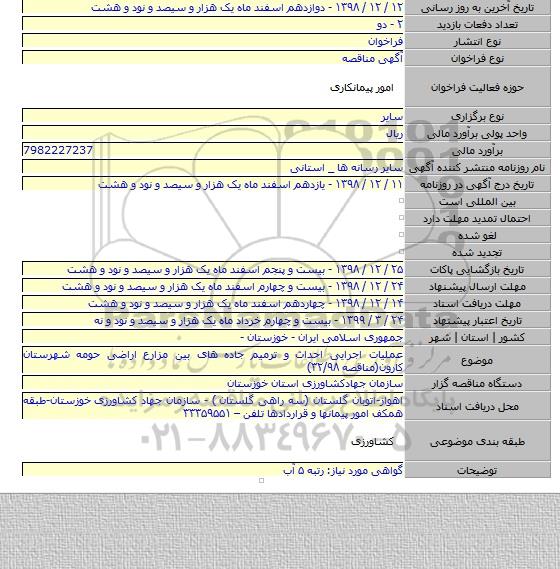 تاریخ آخرین به روز رسانی ۱۲ / ۱۲ / ۱۳۹۸ - دوازدهم اسفند ماه یک هزار و سیصد و نود و هشت
تعداد دفعات بازدید ۲ - دو
نوع انتشار فراخوان
نوع فراخوان آگهی مناقصه
حوزه فعالیت فراخوان امور پیمانکاری
نوع برگزاری سایر
واحد پولی برآورد مالی ریال
برآورد مالی 7982227237
نام روزنامه منتشر کننده آگهی سایر رسانه ها _ استانی
تاریخ درج آگهی در روزنامه ۱۱ / ۱۲ / ۱۳۹۸ - یازدهم اسفند ماه یک هزار و سیصد و نود و هشت
بین المللی است
احتمال تمدید مهلت دارد
لغو شده
تجدید شده
تاریخ بازگشایی پاکات ۲۵ / ۱۲ / ۱۳۹۸ - بیست و پنجم اسفند ماه یک هزار و سیصد و نود و هشت
مهلت ارسال پیشنهاد ۲۴ / ۱۲ / ۱۳۹۸ - بیست و چهارم اسفند ماه یک هزار و سیصد و نود و هشت
مهلت دریافت اسناد ۱۴ / ۱۲ / ۱۳۹۸ - چهاردهم اسفند ماه یک هزار و سیصد و نود و هشت
تاریخ اعتبار پیشنهاد ۲۴ / ۳ / ۱۳۹۹ - بیست و چهارم خرداد ماه یک هزار و سیصد و نود و نه
کشور | استان | شهر جمهوری اسلامی ایران - خوزستان -
موضوع عملیات اجرایی احداث و ترمیم جاده های بین مزارع اراضی حومه شهرستان
کارون(مناقصه ۳۲/۹۸)
دستگاه مناقصه گزار سازمان جهادکشاورزی استان خوزستان
محل دریافت اسناد اهواز-اتوبان گلستان (سه راهی گلستان ) - سازمان جهاد کشاورزی خوزستان-طبقه
همکف امور پیمانها و قراردادها تلفن – ۳۳۳۵۹۵۵۱
طبقه بندی موضوعی کشاورزی
توضیحات گواهی مورد نیاز: رتبه ۵ آب
۰۲۱-۸۸۳۴۹۶۷۰-۵